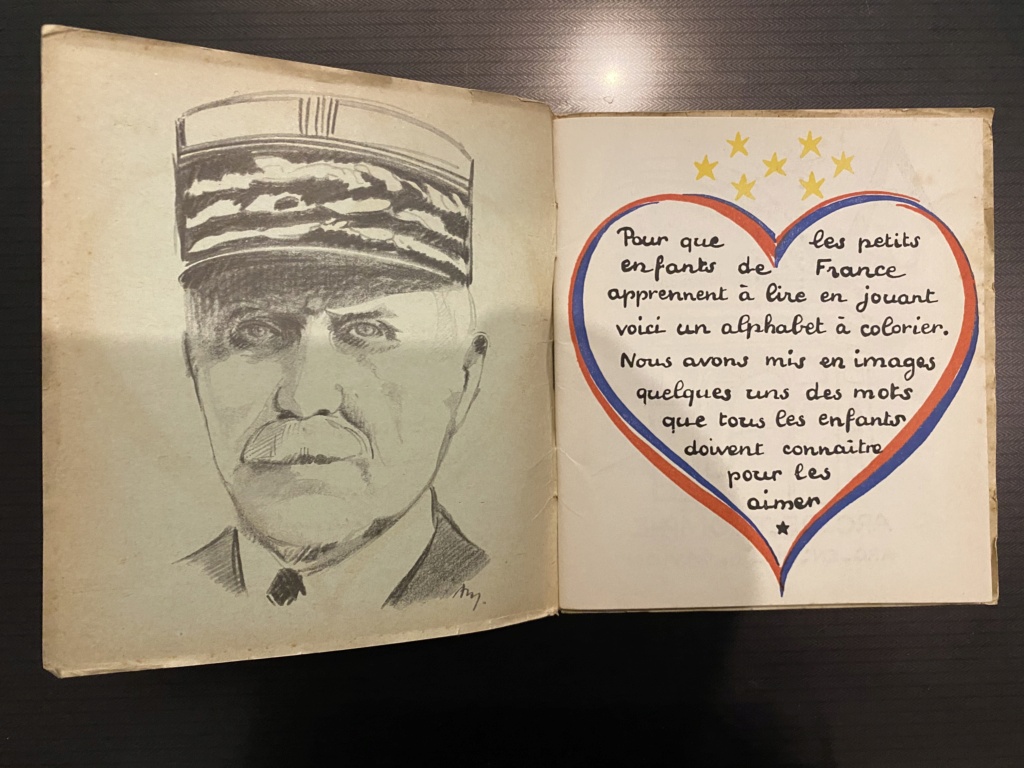 Pour que les petits
enfants de France
apprennent à lire en jouant
voici un alphabet à colorier.
Nous avons mis en images
quelques uns des mots
que tous les enfants
doivent connaître
pour les
aimer